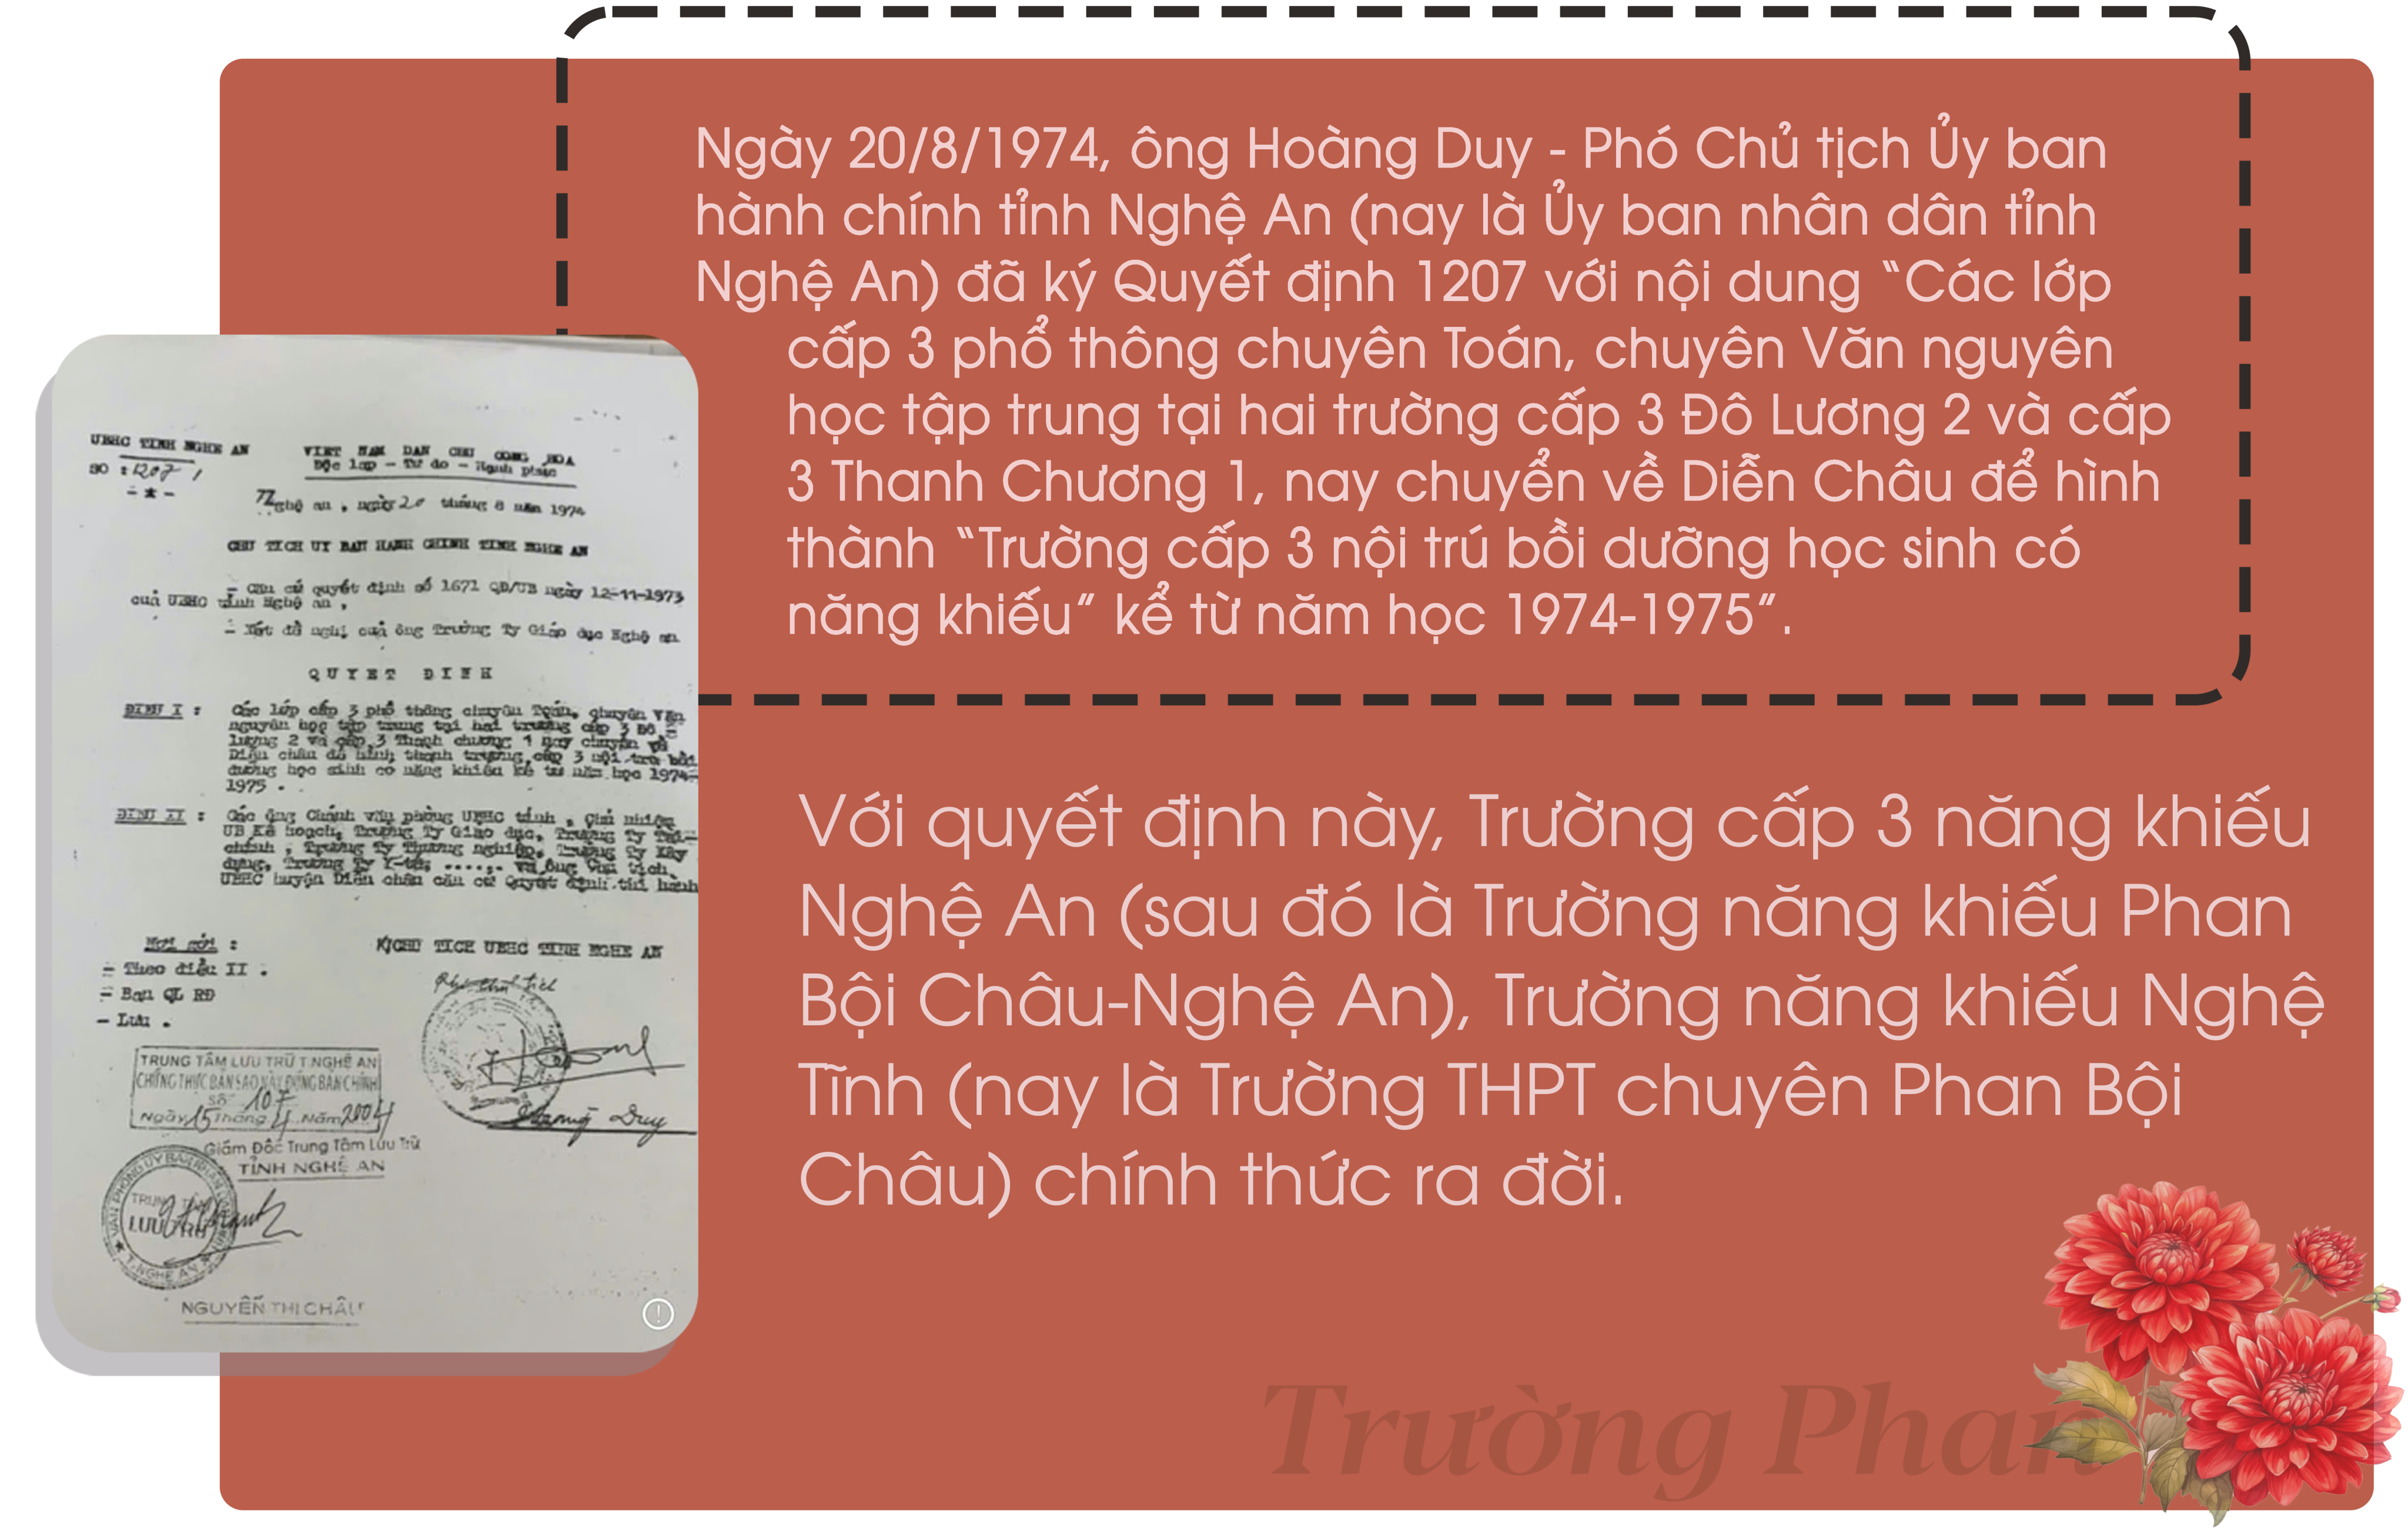 Ngày 20/8/1974, ông Hoàng Duy - Phó Chủ tịch Ủy ban
hành chính tỉnh Nghệ An (nay là Ủy ban nhân dân tỉnh
Nghệ An) đã ký Quyết định 1207 với nội dung “Các lớp
cấp 3 phổ thông chuyên Toán, chuyên Văn nguyên
học tập trung tại hai trường cấp 3 Đô Lương 2 và cấp
3 Thanh Chương 1, nay chuyển về Diễn Châu để hình
thành “Trường cấp 3 nội trú bồi dưỡng học sinh có
năng khiếu” kể từ năm học 1974-1975”.
UBHC TINH NGHE AN
SO : 1207
- * -
VIET NAM DAN CHU CONG HOA
Độc lập - Tư do - Hạnh phúc
Nghệ an, ngày 20 tháng 8 năm 1974
CHU TICH UY BAN HANH CHINH TINH NGHE AN
- Căn cứ quyết định số 1671 QĐ/UB ngày 12-11-1973
của UBHC tỉnh Nghệ an,
- Xét đề nghị của ông Trưởng Ty Giáo dục Nghệ an
QUYET DINH
ĐIEU I : Các lớp cấp 3 phổ thông chuyên Toán, chuyên Văn
nguyên học tập trung tại hai trường cấp 3 Đô
lương 2 và cấp 3 Thanh chương 1 nay chuyển về
Diễn châu để hình thành trường cấp 3 nội trú bồi
dưỡng học sinh có năng khiếu kể từ năm học 1974-
1975.
ĐIEU II : Các ông Chánh văn phòng UBHC tỉnh, Chủ nhiệm
UB Kế hoạch, Trưởng Ty Giáo dục, Trưởng Ty Tài-
chính, Trưởng Ty Thương nghiệp, Trưởng Ty Xây
dựng, Trưởng Ty Y-tế, ....., và ông Chủ tịch
UBHC huyện Diễn châu căn cứ Quyết định thi hành
Nơi gửi :
- Theo điều II .
- Ban QL RĐ
- Lưu .
K/CHU TICH UBHC TINH NGHE AN
Phó chủ tịch
Hoàng Duy
TRUNG TÂM LƯU TRỮ T.NGHỆ AN
CHỨNG THỰC BẢN SAO NÀY ĐÚNG BẢN CHÍNH
Số 107
Ngày 15 Tháng 4 Năm 2004
Giám Đốc Trung Tâm Lưu Trữ
TỈNH NGHỆ AN
TRUNG TÂM
LƯU TRỮ
T.NGHỆ AN
NGUYỄN THỊ CHÂU
Với quyết định này, Trường cấp 3 năng khiếu
Nghệ An (sau đó là Trường năng khiếu Phan
Bội Châu-Nghệ An), Trường năng khiếu Nghệ
Tĩnh (nay là Trường THPT chuyên Phan Bội
Châu) chính thức ra đời.
Trường Phan